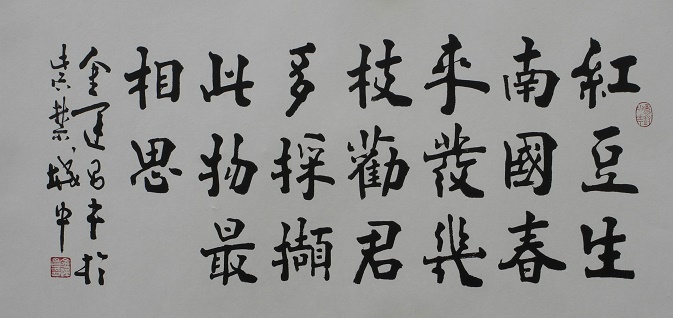 紅豆生
南國春
來發幾
枝勸君
多採擷
此物最
相思
金運昌书於
紫禁城中